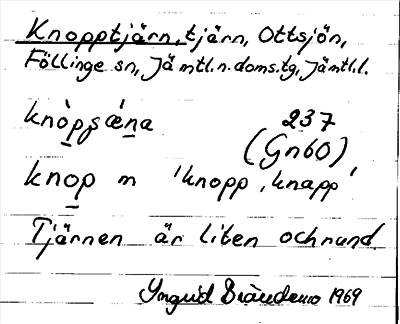 Knopptjärn, tjärn, Ottsjön,
Föllinge sn, Jämtl. n. doms.tg, Jämtl.l.
knòpsǽna 237
(Gn60)
knop m 'knopp, knapp'
Tjärnen är liten och rund.
Yngvid 1969